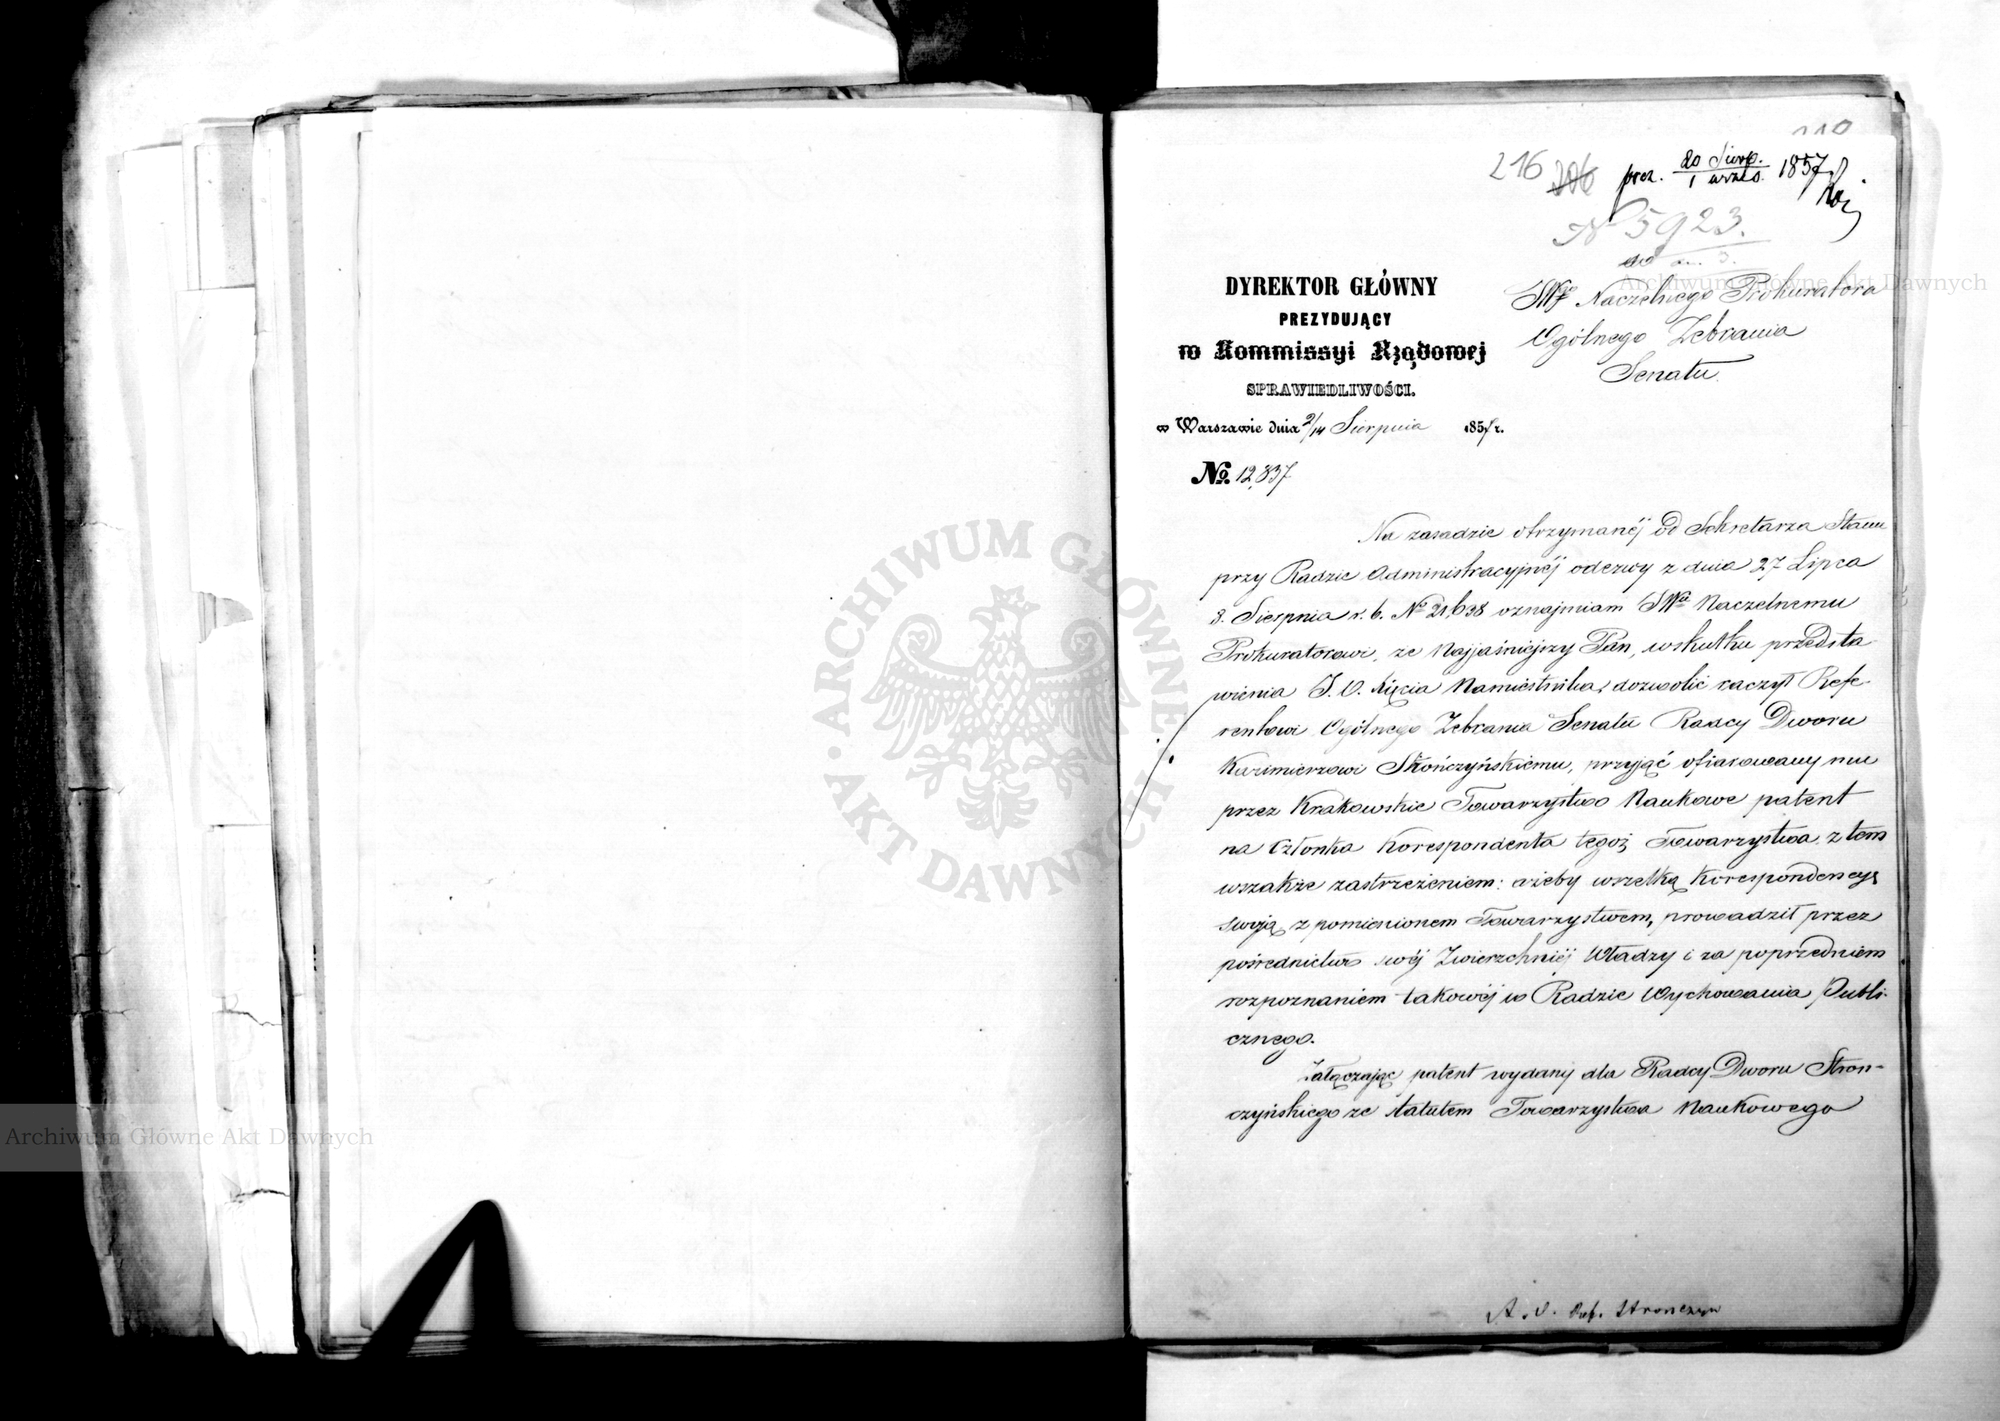 216 206 prez. 20 Sierp. / 1 wrześ. 1857
№ 5923.
DYREKTOR GŁÓWNY
PREZYDUJĄCY
w Kommissyi Rządowej
SPRAWIEDLIWOŚCI.
w Warszawie dnia 2/14 Sierpnia 1857 r.
No. 12,837
JWgo Naczelnego Prokuratora
Ogólnego Zebrania
Senatu.
Na zasadzie otrzymanéj od Sekretarza Stanu
przy Radzie Administracyjnéj odezwy z dnia 27 Lipca
8. Sierpnia r. b. No 21,638 oznajmiam JWu Naczelnemu
Prokuratorowi, że Najjaśniejszy Pan, wskutku przedsta-
wienia J. O. Xięcia Namiestnika, dozwolić raczył Refe-
rentowi Ogólnego Zebrania Senatu Radcy Dworu
Kazimierzowi Stończyńskiemu, przyjąć ofiarowany mu
przez Krakowskie Towarzystwo Naukowe patent
na Członka Korespondenta tegoż Towarzystwa, z tem
wszakże zastrzeżeniem: ażeby wszelką Korespondencyę
swoją z pomienionem Towarzystwem, prowadził przez
pośrednictwo swéj Zwierzchniéj Władzy i za poprzedniem
rozpoznaniem takowéj w Radzie Wychowania Publi-
cznego.
Załączając patent wydany dla Radcy Dworu Stron-
czyńskiego ze statutem Towarzystwa Naukowego
A. O. Ref. Stronczyn
ARCHIWUM GŁÓWNE · AKT DAWNYCH ·
Archiwum Główne Akt Dawnych
Archiwum Główne Akt Dawnych